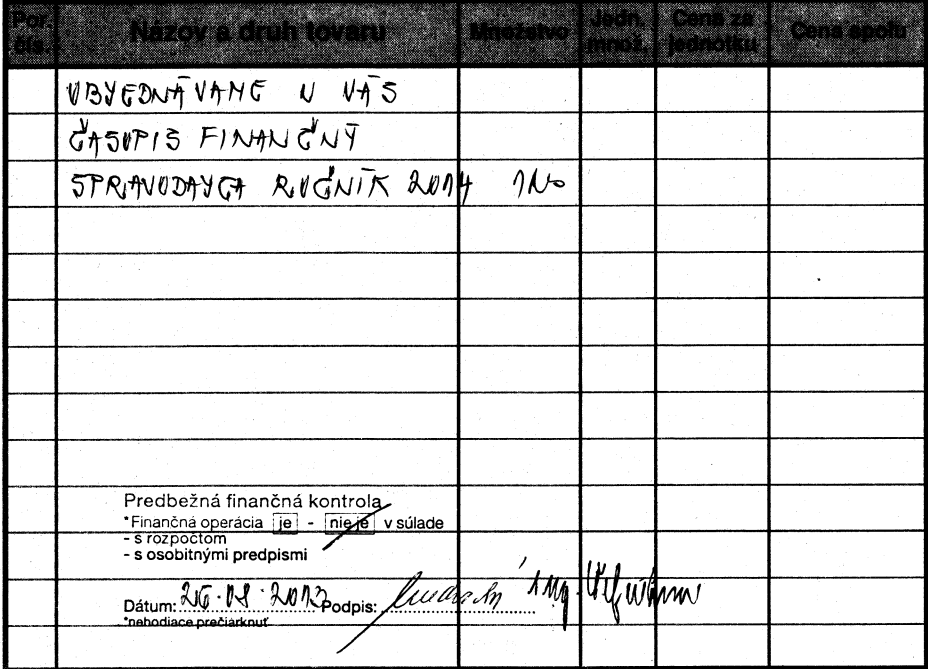 Por. čís. Názov a druh tovaru Množstvo Jedn. množ. Cena za jednotku Cena spolu
OBJEDNÁVAME U VÁS
ČASOPIS FINANČNÝ
SPRAVODAJCA ROČNÍK 2014 1KS
Predbežná finančná kontrola
*Finančná operácia je - nie je v súlade
- s rozpočtom
- s osobitnými predpismi
Dátum: 26.08.2013 Podpis: Ing.
*nehodiace prečiarknuť